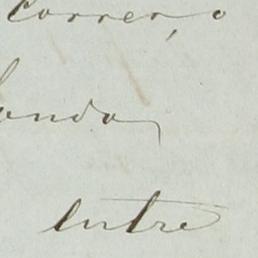 Correr, o
ondo
entre